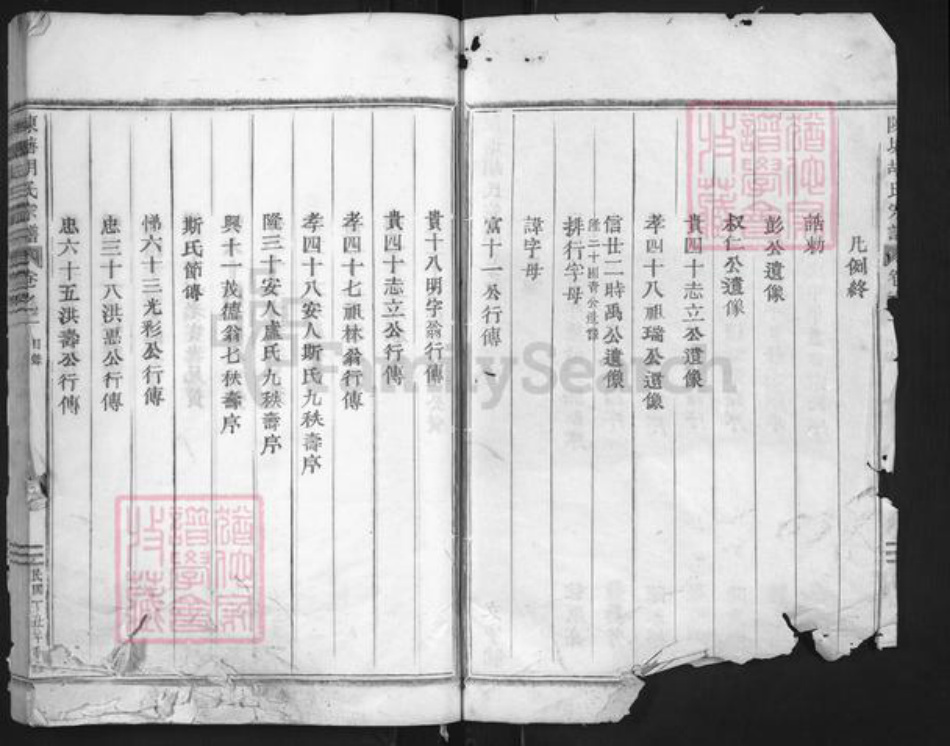 凡例終
誥勅
彭公遺像
叔仁公遺像
貴四十志立公遺像
孝四十八祖瑞公遺像
信廿二時禹公遺像
隆二十國香公遺譯
排行字母
諱字母
富十一公行傳
貴十八明字翁行傳
貴四十志立公行傳
孝四十七祖林翁行傳
孝四十八安人斯氏九秩壽序
隆三十安人盧氏九秩壽序
興十一茂德翁七秩壽序
斯氏節傳
悌六十三光彩公行傳
忠三十八洪惪公行傳
忠六十五洪壽公行傳
胡氏宗譜 卷之一 目錄
民國丁丑年
FamilySearch